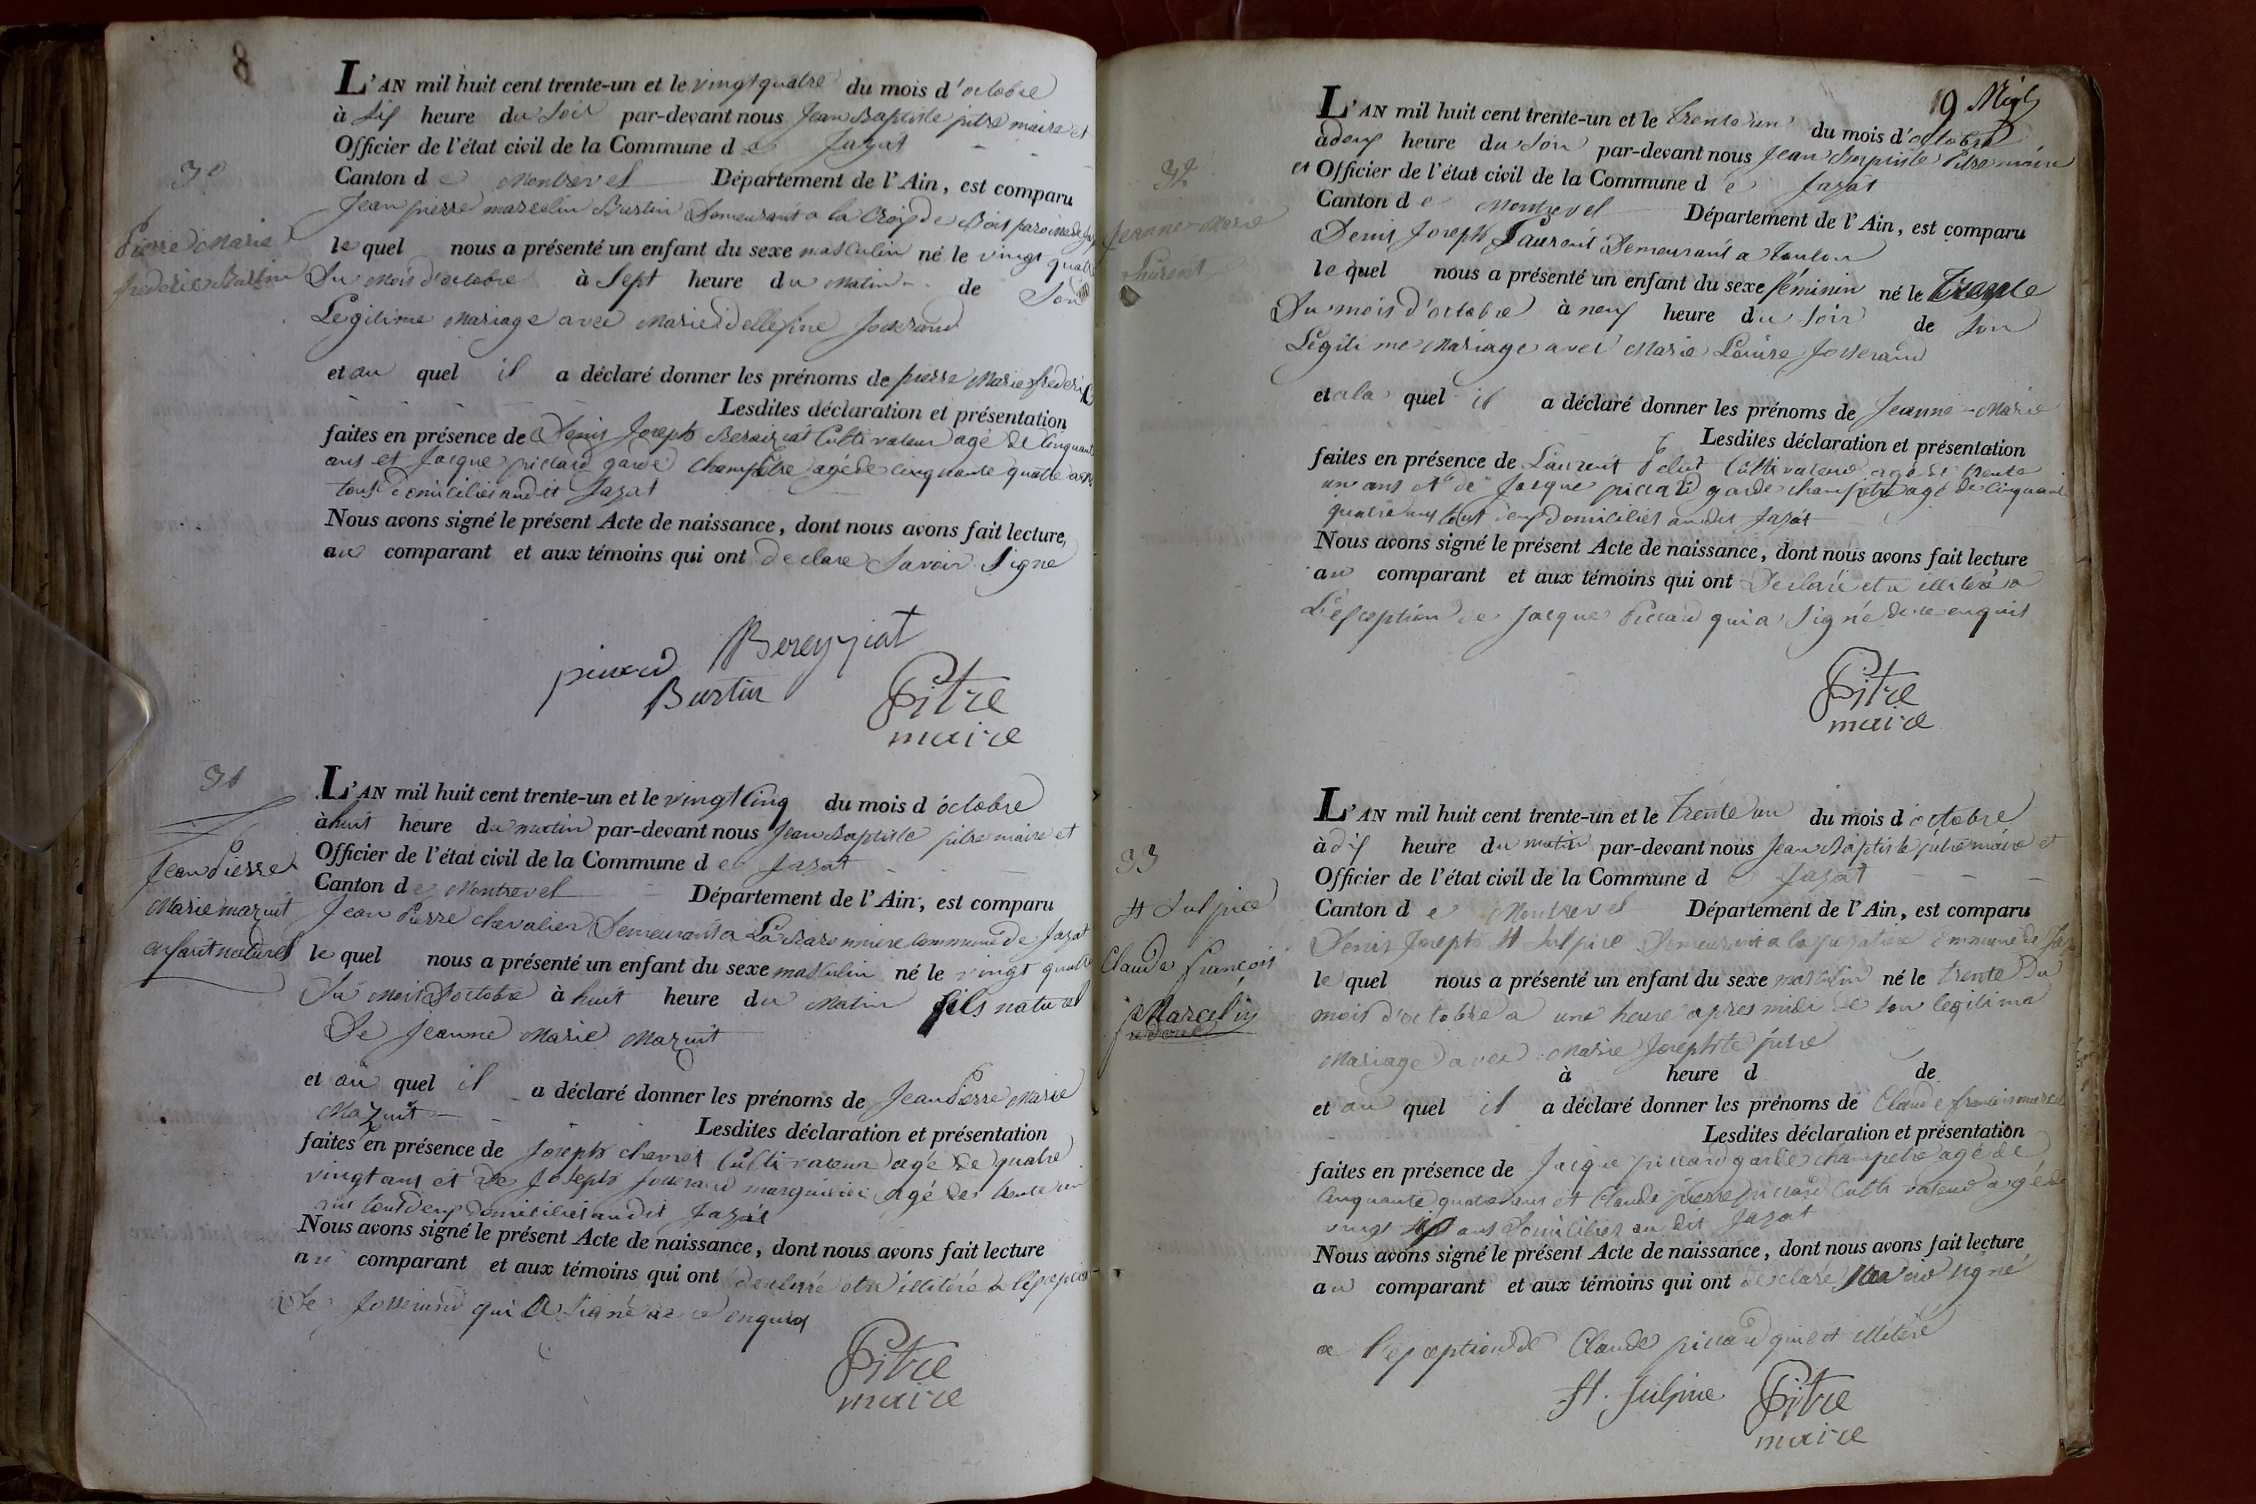 8
L'AN mil huit cent trente-un et le vingt quatre du mois d'octobre
à six heure du soir par-devant nous Jean Baptiste pitre maire et
Officier de l'état civil de la Commune de Jazat
30
Canton de Montrevel Département de l'Ain, est comparu
Jean pierre marcelin Burtin Demeurant a la Croix de Bois
Pierre Marie
frederic Burtin
le quel nous a présenté un enfant du sexe masculin né le vingt quatre
Du Mois d'octobre à Sept heure du Matin de Son
Legitime Mariage avec Marie Josserand
et au quel il a déclaré donner les prénoms de pierre Marie frederic
Lesdites déclaration et présentation
faites en présence de Denis Joseph Cultivateur agé de Cinquante
ans et Jacque piccard garde Champêtre agé de Cinquante quatre ans
tous domiciliés audit Jazat
Nous avons signé le présent Acte de naissance, dont nous avons fait lecture,
au comparant et aux témoins qui ont declare Savoir Signe
Bereyziat
picard
Burtin
Pitre
maire
31
L'AN mil huit cent trente-un et le vingt Cinq du mois d'octobre
à huit heure du matin par-devant nous Jean Baptiste pitre maire et
Officier de l'état civil de la Commune de Jazat
Jean Pierre
Marie mazuit
enfant naturel
Canton de Montrevel Département de l'Ain, est comparu
Jean Pierre chevalier Demeurant a commune de Jazat
le quel nous a présenté un enfant du sexe masculin né le vingt quatre
Du Mois d'octobre à huit heure du Matin fils naturel
De Jeanne Marie Mazuit
et au quel il a déclaré donner les prénoms de Jean Pierre Marie
Mazuit
Lesdites déclaration et présentation
faites en présence de Joseph Cultivateur agé de quatre
vingt ans et de Joseph Josserand agé de trente un
ans tout deux domiciliés audit Jazat
Nous avons signé le présent Acte de naissance, dont nous avons fait lecture
au comparant et aux témoins qui ont declaré etre illiteré a l'exception
De Josserand qui a signé de ce enquis
Pitre
maire
19
L'AN mil huit cent trente-un et le trente un du mois d'octobre
a deux heure du soir par-devant nous Jean Baptiste Pitre maire
32
et Officier de l'état civil de la Commune de Jazat
Canton de Montrevel Département de l'Ain, est comparu
Jeanne-Marie
Laurent
Denis Joseph Laurent Demeurant a
le quel nous a présenté un enfant du sexe féminin né le trente
Du mois d'octobre à neuf heure du soir de son
Légitime Mariage avec Marie Louise Josserand
et a la quel il a déclaré donner les prénoms de Jeanne-Marie
Lesdites déclaration et présentation
faites en présence de Laurent Cultivateur agé de trente
un ans et de Jacque piccard garde champêtre agé de Cinquante
quatre ans tout deux domiciliés audit Jazat
Nous avons signé le présent Acte de naissance, dont nous avons fait lecture
au comparant et aux témoins qui ont Declaré etre illiteré a
L'exception de Jacque Piccard qui a Signé de ce enquis
Pitre
maire
L'AN mil huit cent trente-un et le trente un du mois d'octobre
à dix heure du matin par-devant nous Jean Baptiste pitre maire et
33
Officier de l'état civil de la Commune de Jazat
St Sulpice
Claude françois
Marcelin
Canton de Montrevel Département de l'Ain, est comparu
Denis Joseph St Sulpice Demeurant a la commune de
le quel nous a présenté un enfant du sexe masculin né le trente Du
mois d'octobre a une heure apres midi de son legitime
Mariage avec Marie Josephte pitre
à heure d de
et au quel il a déclaré donner les prénoms de Claude francois
Lesdites déclaration et présentation
faites en présence de Jacque piccard garde champetre agé de
Cinquante quatre ans et Claude pierre piccard Cultivateur agé de
vingt sept ans Domiciliés au dit Jazat
Nous avons signé le présent Acte de naissance, dont nous avons fait lecture
au comparant et aux témoins qui ont declaré signé
a l'exception de Claude piccard qui est illiteré
St. Sulpice
Pitre
maire